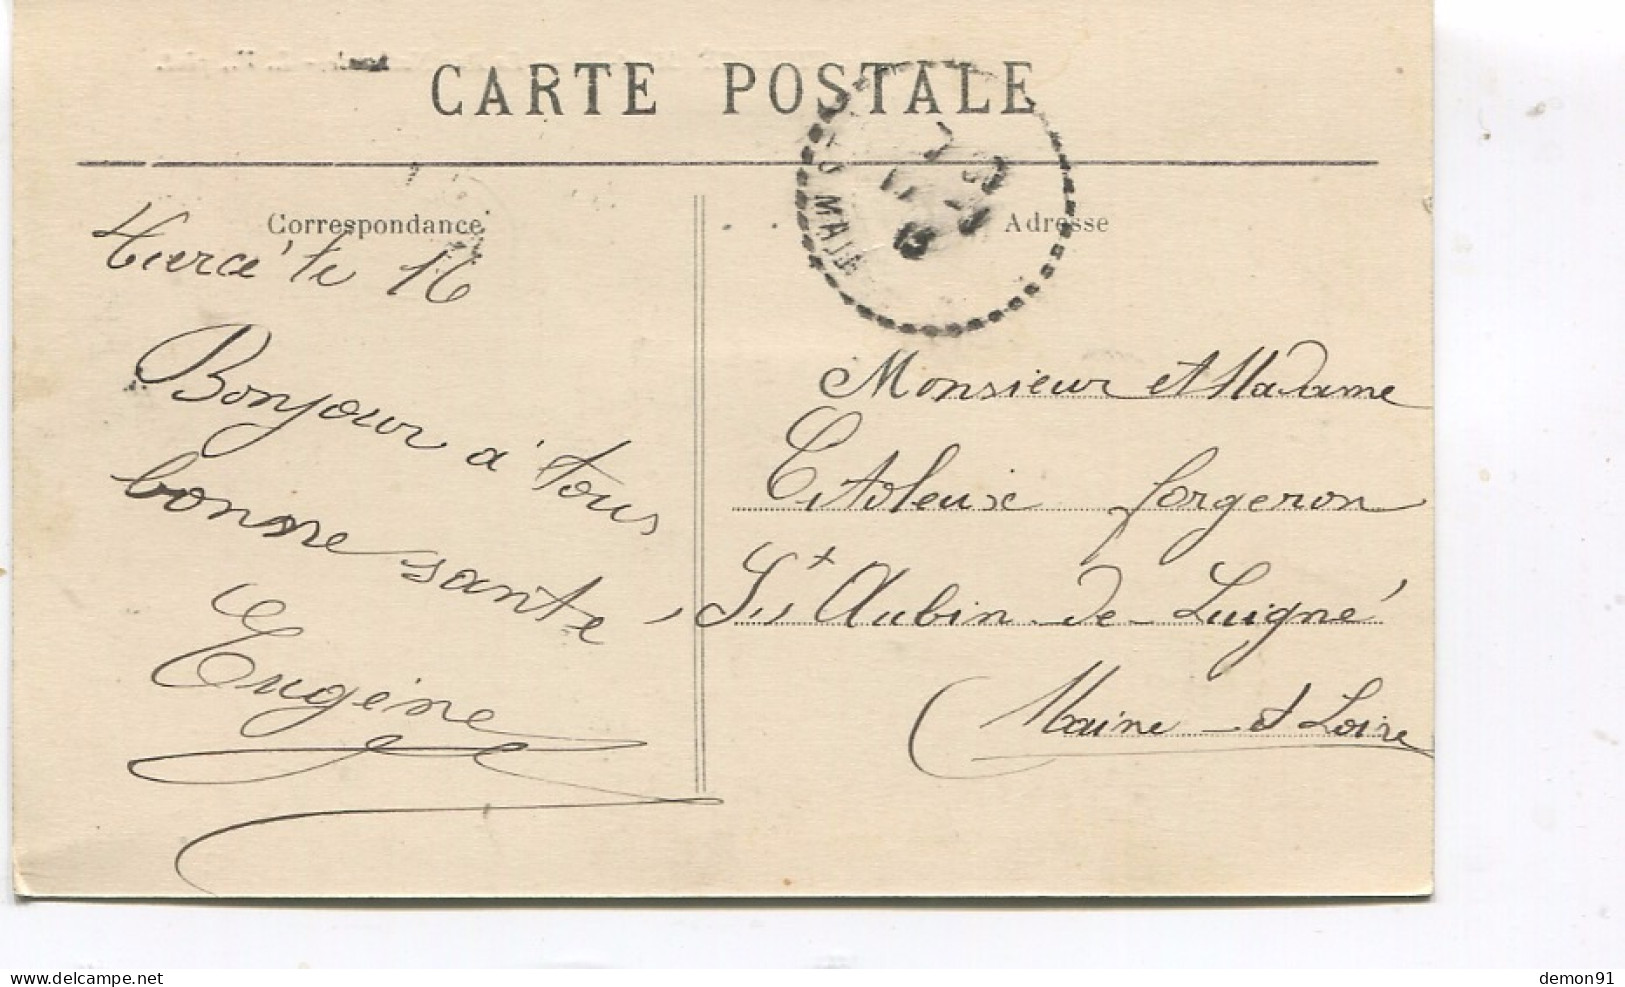 CARTE POSTALE
Correspondance
Tiercé le 16
Bonjour à tous
bonne santé
Eugène
Adresse
Monsieur et Madame
forgeron
St Aubin de Luigné
Maine et Loire
demon91